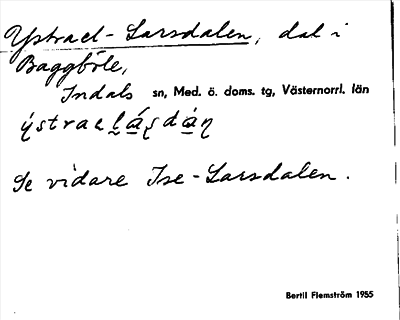 Ystrael-Larsdalen, dal i
Baggböle,
Indals sn, Med. ö. doms. tg, Västernorrl. län
Se vidare Ise-Larsdalen.
Bertil Flemström 1955